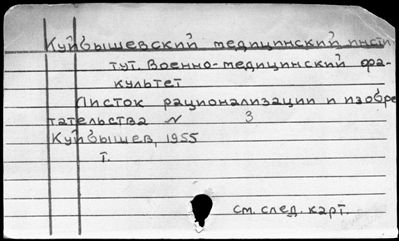 Куйбышевский медицинский инсти-
тут. Военно-медицинский фа-
культет
Листок рационализации и изобре
тательства № 3
Куйбышев, 1955
т.
см. след. карт.